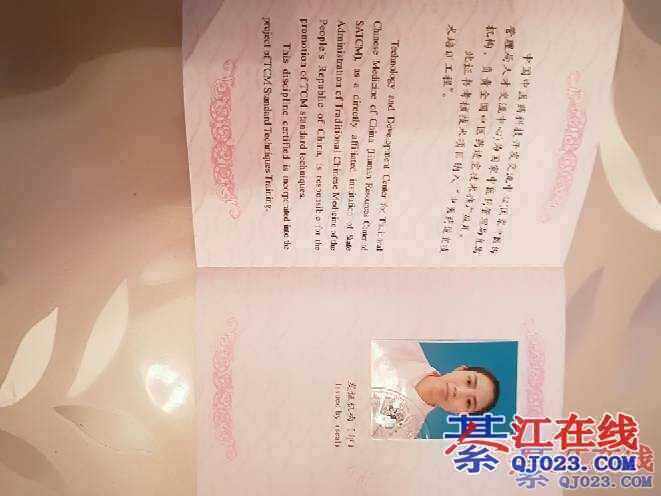 中国中医药科技开发交流中心(国家中医药
管理局人才交流中心)为国家中医药管理局直属
机构，负责全国中医药适宜技术推广项目。
此证书考核技术项目纳入“中医药适宜技
术培训工程”。
Technology and Development Center for Traditional
Chinese Medicine of China (Human Resources Center of
SATCM), as a directly affiliated institution of State
Administration of Traditional Chinese Medicine of the
People's Republic of China, is responsible for the
promotion of TCM standard techniques.
This discipline certified is incorporated into the
project of TCM Standard Techniques Training.
发证机构（印）
Issued by (seal)
綦江在线
QJ023.COM